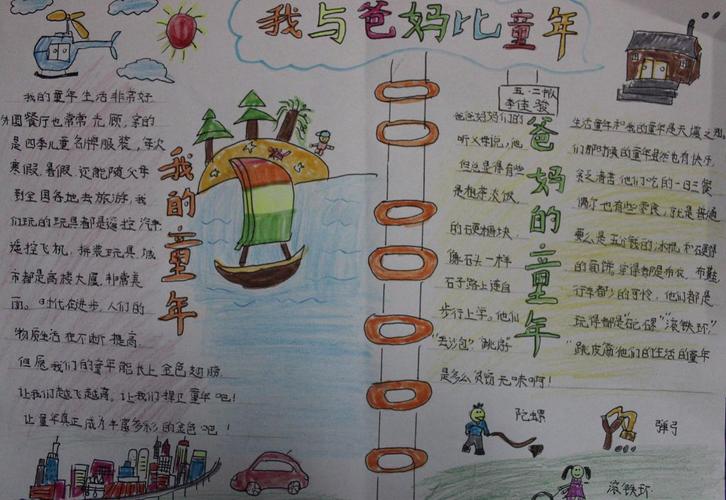 我与爸妈比童年
五·二中队
李佳骏
我的童年
我的童年生活非常好
外国餐厅也常常光顾,穿的
是四季儿童名牌服装,每次
寒假、暑假还能随父母
到全国各地去旅游,我
们玩的玩具都是遥控汽车
遥控飞机,拼装玩具,城
市都是高楼大厦,非常美
丽。时代在进步,人们的
物质生活也不断提高,
但愿我们的童年能长上金色翅膀
让我们越飞越高,让我们捍卫童年吧!
让童年真正成为丰富多彩的金色吧!
爸妈的童年
爸爸妈妈们的
听父母说,他
但总显得有些
是粗茶淡饭,
的硬糖块,
像石头一样
石子路上连自
步行上学。他们
"丢沙包""跳房"
是多么贫穷无味啊!
生活童年和我的童年是天壤之别,
们那时候的童年虽然也有快乐
偶尔也有些零食,就是普通
要么是五分钱的冰棍和
行车都少的可怜,他们都是
玩得都是 "滚铁环"
"跳皮筋他们的生活的童年
陀螺
弹弓
滚铁环